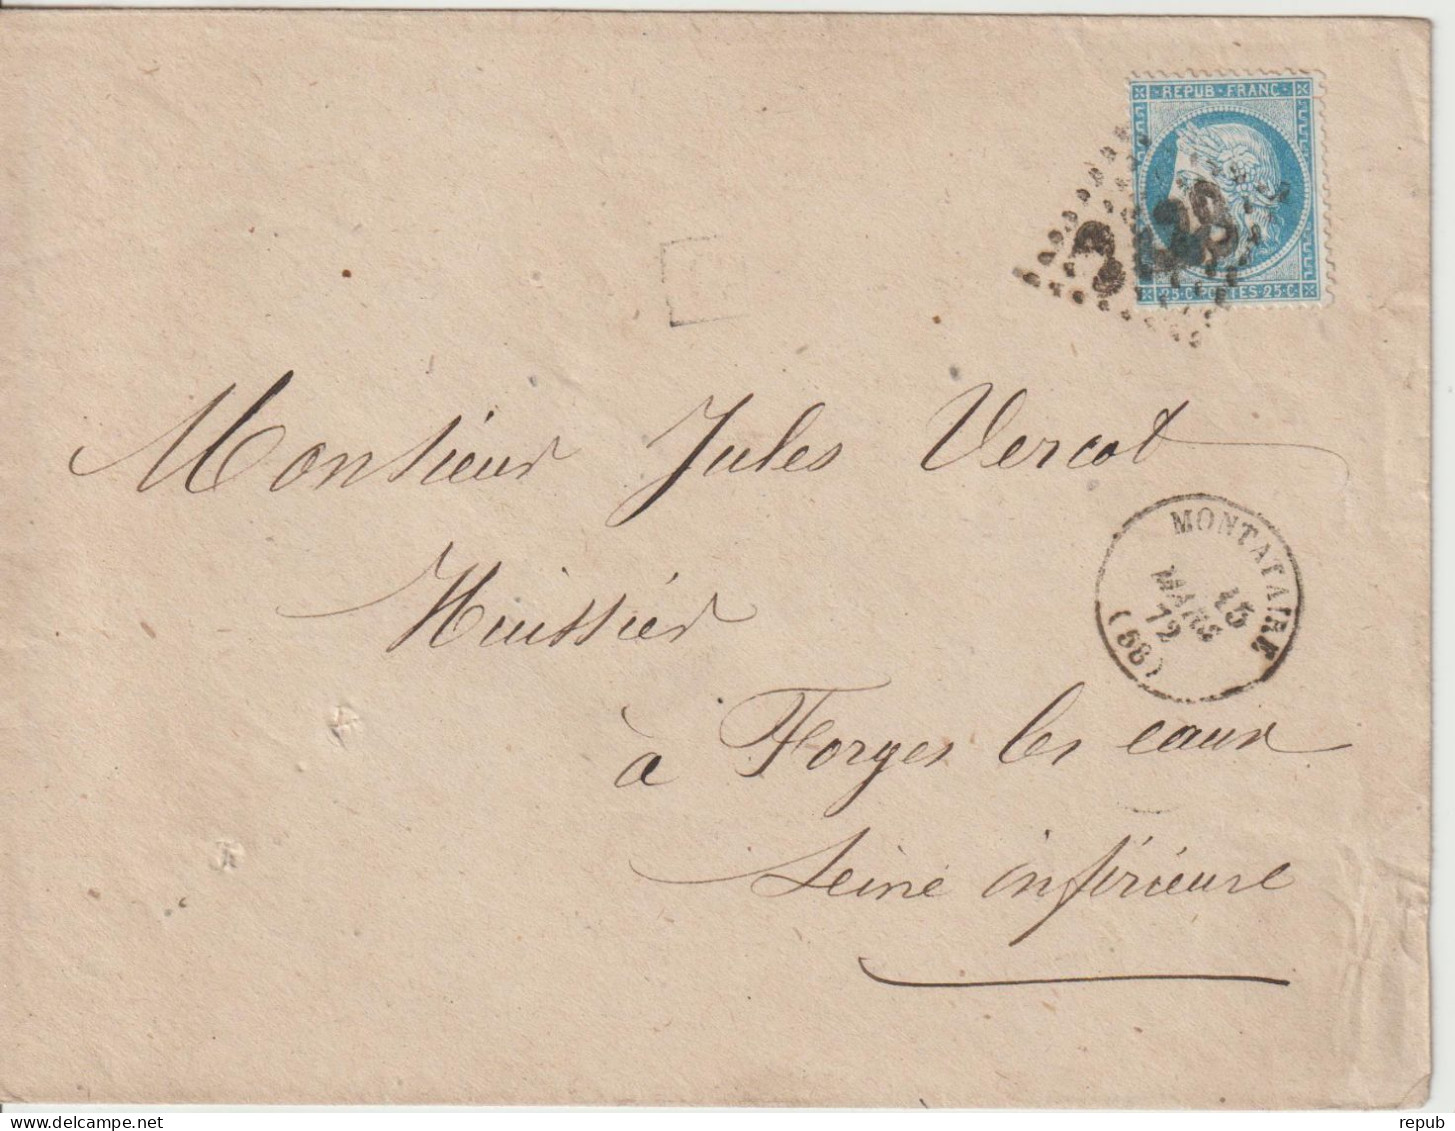 REPUB · FRANC ·
25·C·POSTES·25·C·
Monsieur Jules Vercot
Huissier
MONTATAIRE
15
MARS
72
(58)
à Forges les eaux
Seine inférieure
repub